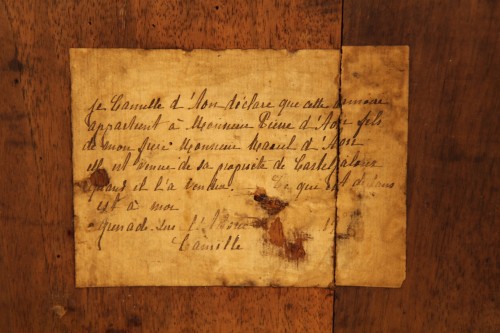 Je Camille d'Aon déclare que cette armoire
appartient à Monsieur Pierre d'Aon fils
de mon frère Monsieur Marcel d'Aon
est venue de sa propriété de Casteljaloux
quand il l'a vendue. Ce que est dans
est à moi
Camille